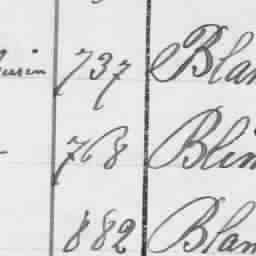 737 Blan
768 Blin
882 Blan